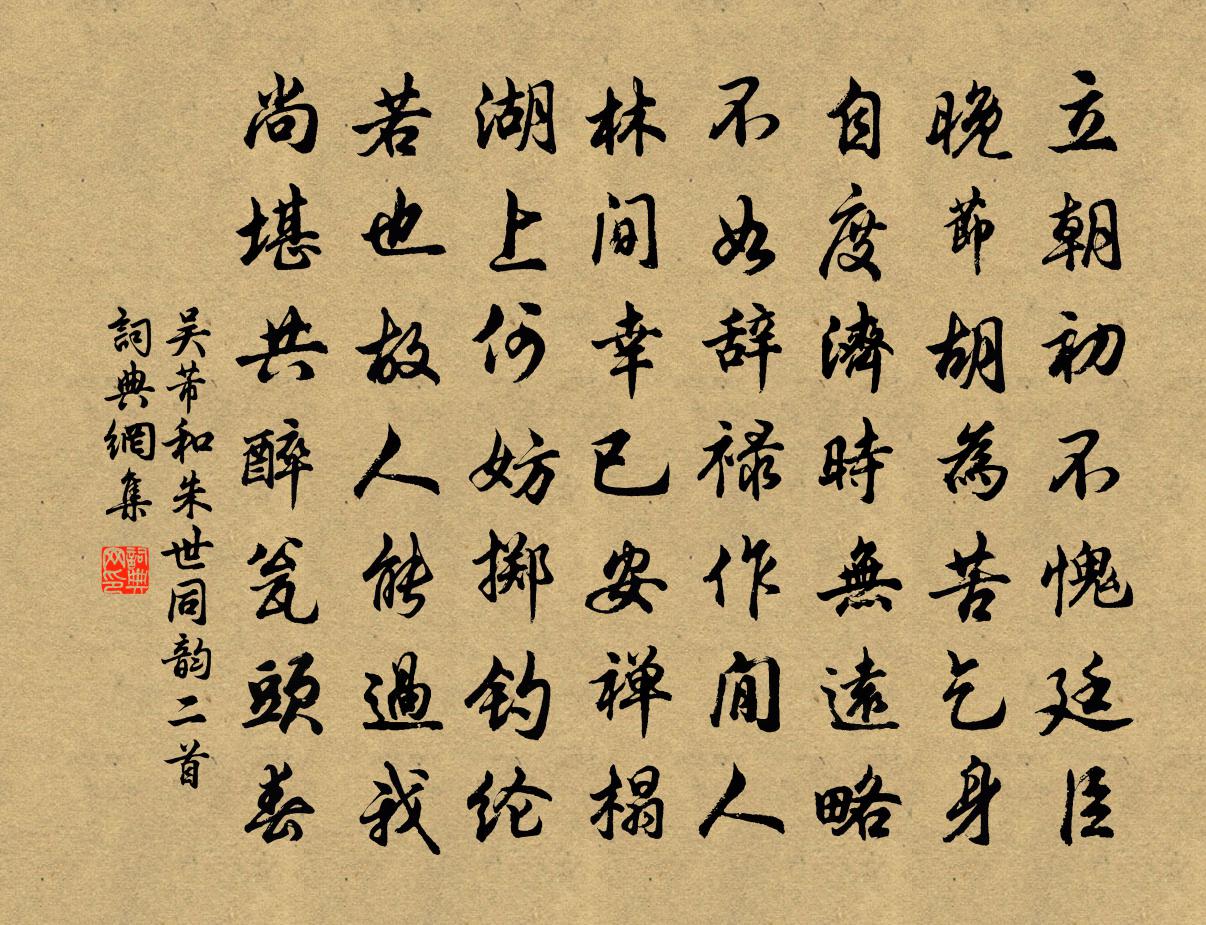 立朝初不愧廷臣
晚節胡為苦乞身
自度濟時無遠略
不如辞禄作閒人
林間幸已安禅榻
湖上何妨掷钓纶
若也故人能過我
尚堪共醉瓮頭春
吴芾和朱世同韵二首
詞典網集
詞典网印